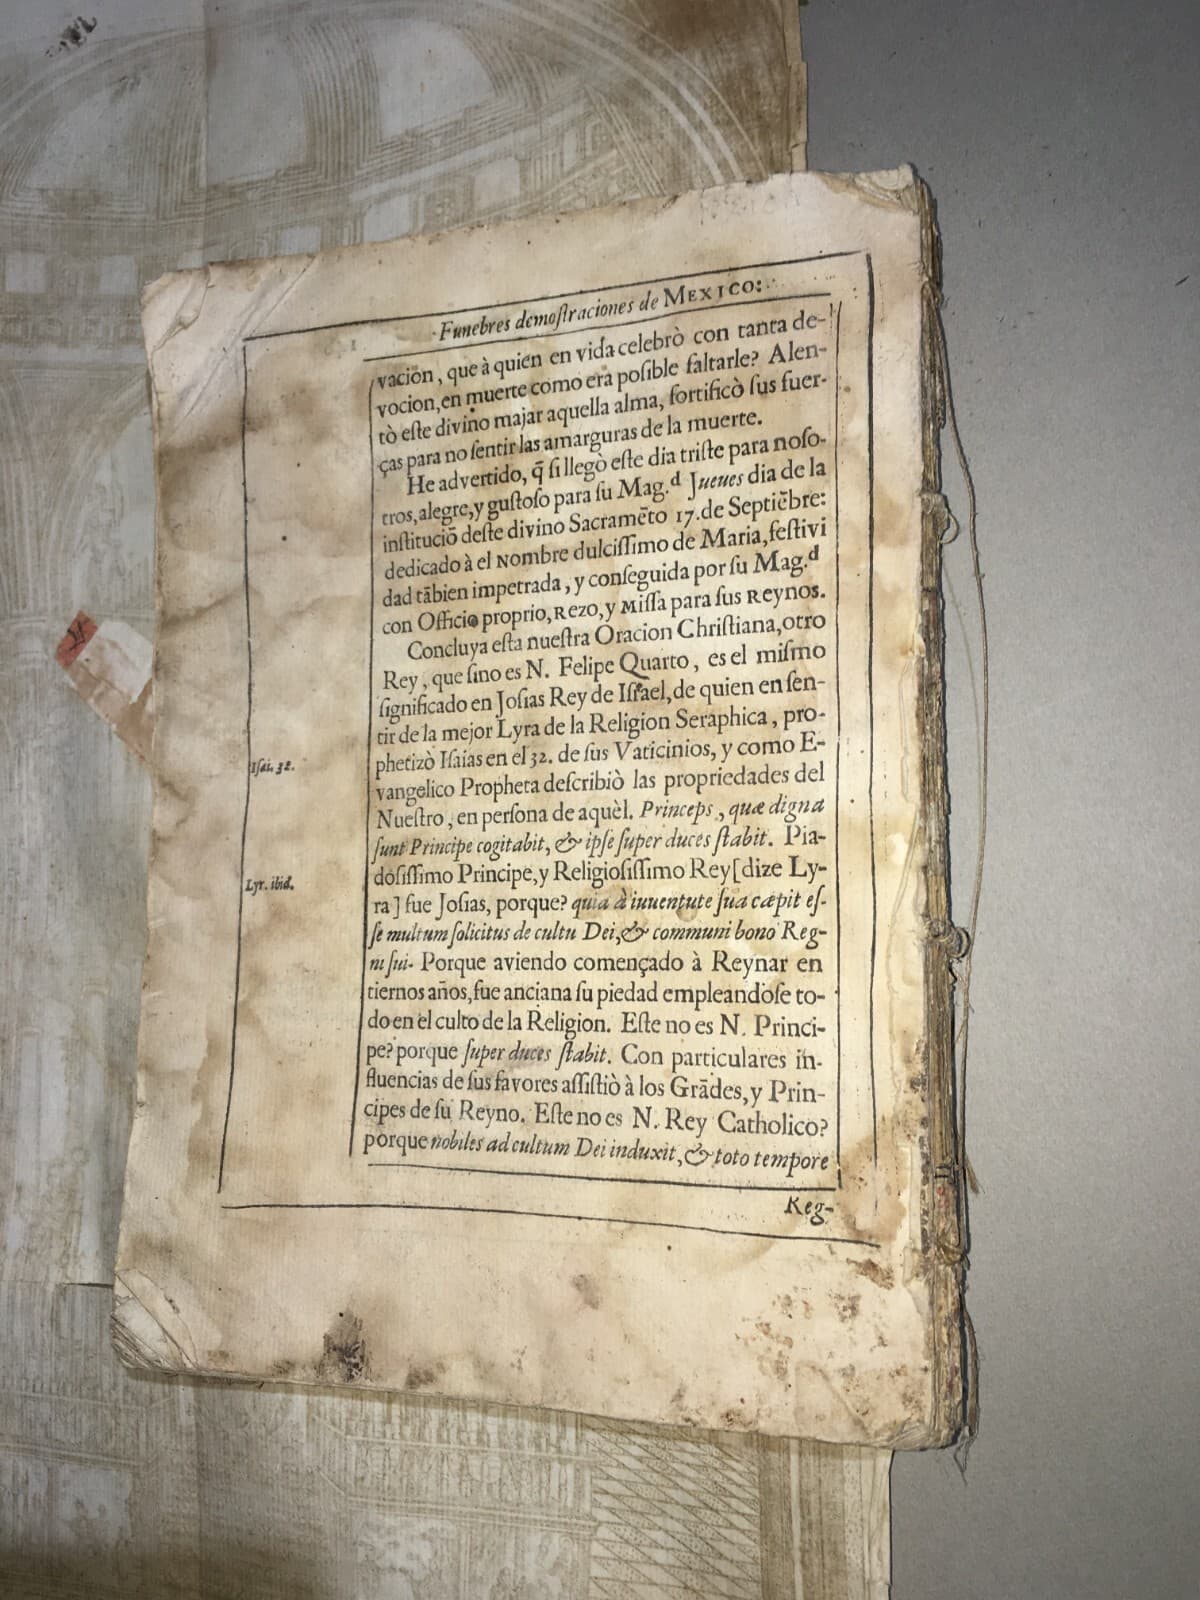 Funebres demoſtraciones de MEXICO:
vaciõn, que à quien en vida celebrò con tanta de-
vocion, en muerte como era poſible faltarle? Alen-
tò eſte divino majar aquella alma, fortificò ſus fuer-
ças para no ſentir las amarguras de la muerte.
He advertido, q̃ ſi llegò eſte dia triſte para noſo-
tros, alegre, y guſtoſo para ſu Mag.d Jueues dia de la
inſtituciõ deſte divino Sacramẽto 17. de Septiẽbre:
dedicado à el Nombre dulciſſimo de Maria, feſtivi
dad tãbien impetrada, y conſeguida por ſu Mag.d
con Officio proprio, Rezo, y Miſſa para ſus Reynos.
Concluya eſta nueſtra Oracion Chriſtiana, otro
Rey, que ſino es N. Felipe Quarto, es el miſmo
ſignificado en Joſias Rey de Iſrael, de quien en ſen-
tir de la mejor Lyra de la Religion Seraphica, pro-
phetizò Iſaias en el 32. de ſus Vaticinios, y como E-
Iſai. 32.
vangelico Propheta deſcribiò las propriedades del
Nueſtro, en perſona de aquèl. Princeps, quæ digna
ſunt Principe cogitabit, & ipſe ſuper duces ſtabit. Pia-
doſiſſimo Principe, y Religioſiſſimo Rey [dize Ly-
Lyr. ibid.
ra] fue Joſias, porque? quia à iuuentute ſua cæpit eſ-
ſe multum ſolicitus de cultu Dei, & communi bono Reg-
ni ſui. Porque aviendo començado à Reynar en
tiernos años, fue anciana ſu piedad empleandoſe to-
do en el culto de la Religion. Eſte no es N. Princi-
pe? porque ſuper duces ſtabit. Con particulares in-
fluencias de ſus favores aſſiſtiò à los Grãdes, y Prin-
cipes de ſu Reyno. Eſte no es N. Rey Catholico?
porque nobiles ad cultum Dei induxit, & toto tempore
Reg-